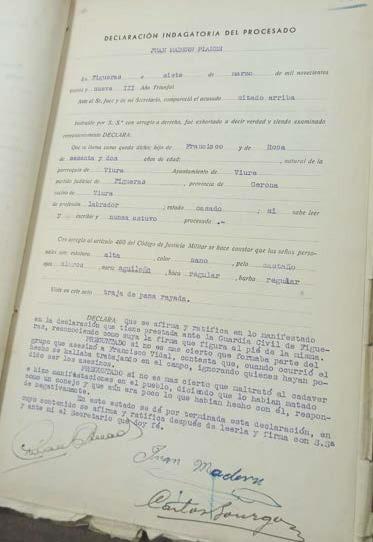 DECLARACIÓN INDAGATORIA DEL PROCESADO
JUAN MADERN
En Figueras a siete de marzo de mil novecientos
treinta y nueve III Año Triunfal
Ante el Sr. Juez y de mi Secretario, compareció el acusado citado arriba
Instruido por S. Sª con arreglo a derecho, fue exhortado a decir verdad y siendo examinado
convenientemente DECLARA:
Que se llama como queda dicho; hijo de Francisco y de Rosa
de sesenta y dos años de edad; , natural de la
parroquia de Viura Ayuntamiento de Viura
partido judicial de Figueras , provincia de Gerona
vecino de Viura
de profesión labrador ; estado casado ; si sabe leer
y escribir y nunca estuvo procesado .-
Con arreglo al artículo 460 del Código de Justicia Militar se hace constar que las señas perso-
nales son: estatura alta , color sano , pelo castaño
ojos claros nariz aguileña , boca regular , barba regular
Viste en este acto traje de pana rayada.
DECLARA: que se afirma y ratifica en lo manifestado
en la declaración que tiene prestada ante la Guardia Civil de Figue-
ras, reconociendo como suya la firma que figura al pié de la misma.
PREGUNTADO si no es mas cierto que formaba parte del
grupo que asesinó a Francisco Vidal, contesta que, cuando ocurrió el
hecho se hallaba trabajando en el campo, ignorando quienes hayan po-
dido ser los asesinos.
PREGUNTADO si no es mas cierto que maltrató al cadaver
e hizo manifestaciones en el pueblo, diciendo que lo habían matado
como un conejo y que aún era poco lo que habían hecho con él, respon-
de negativamente.
En este estado se dá por terminada esta declaración, en
cuyo contenido se afirma y ratifica después de leerla y firma con S.Sª
y ante mi el Secretario que doy fé.
Juan Madern
Carlos